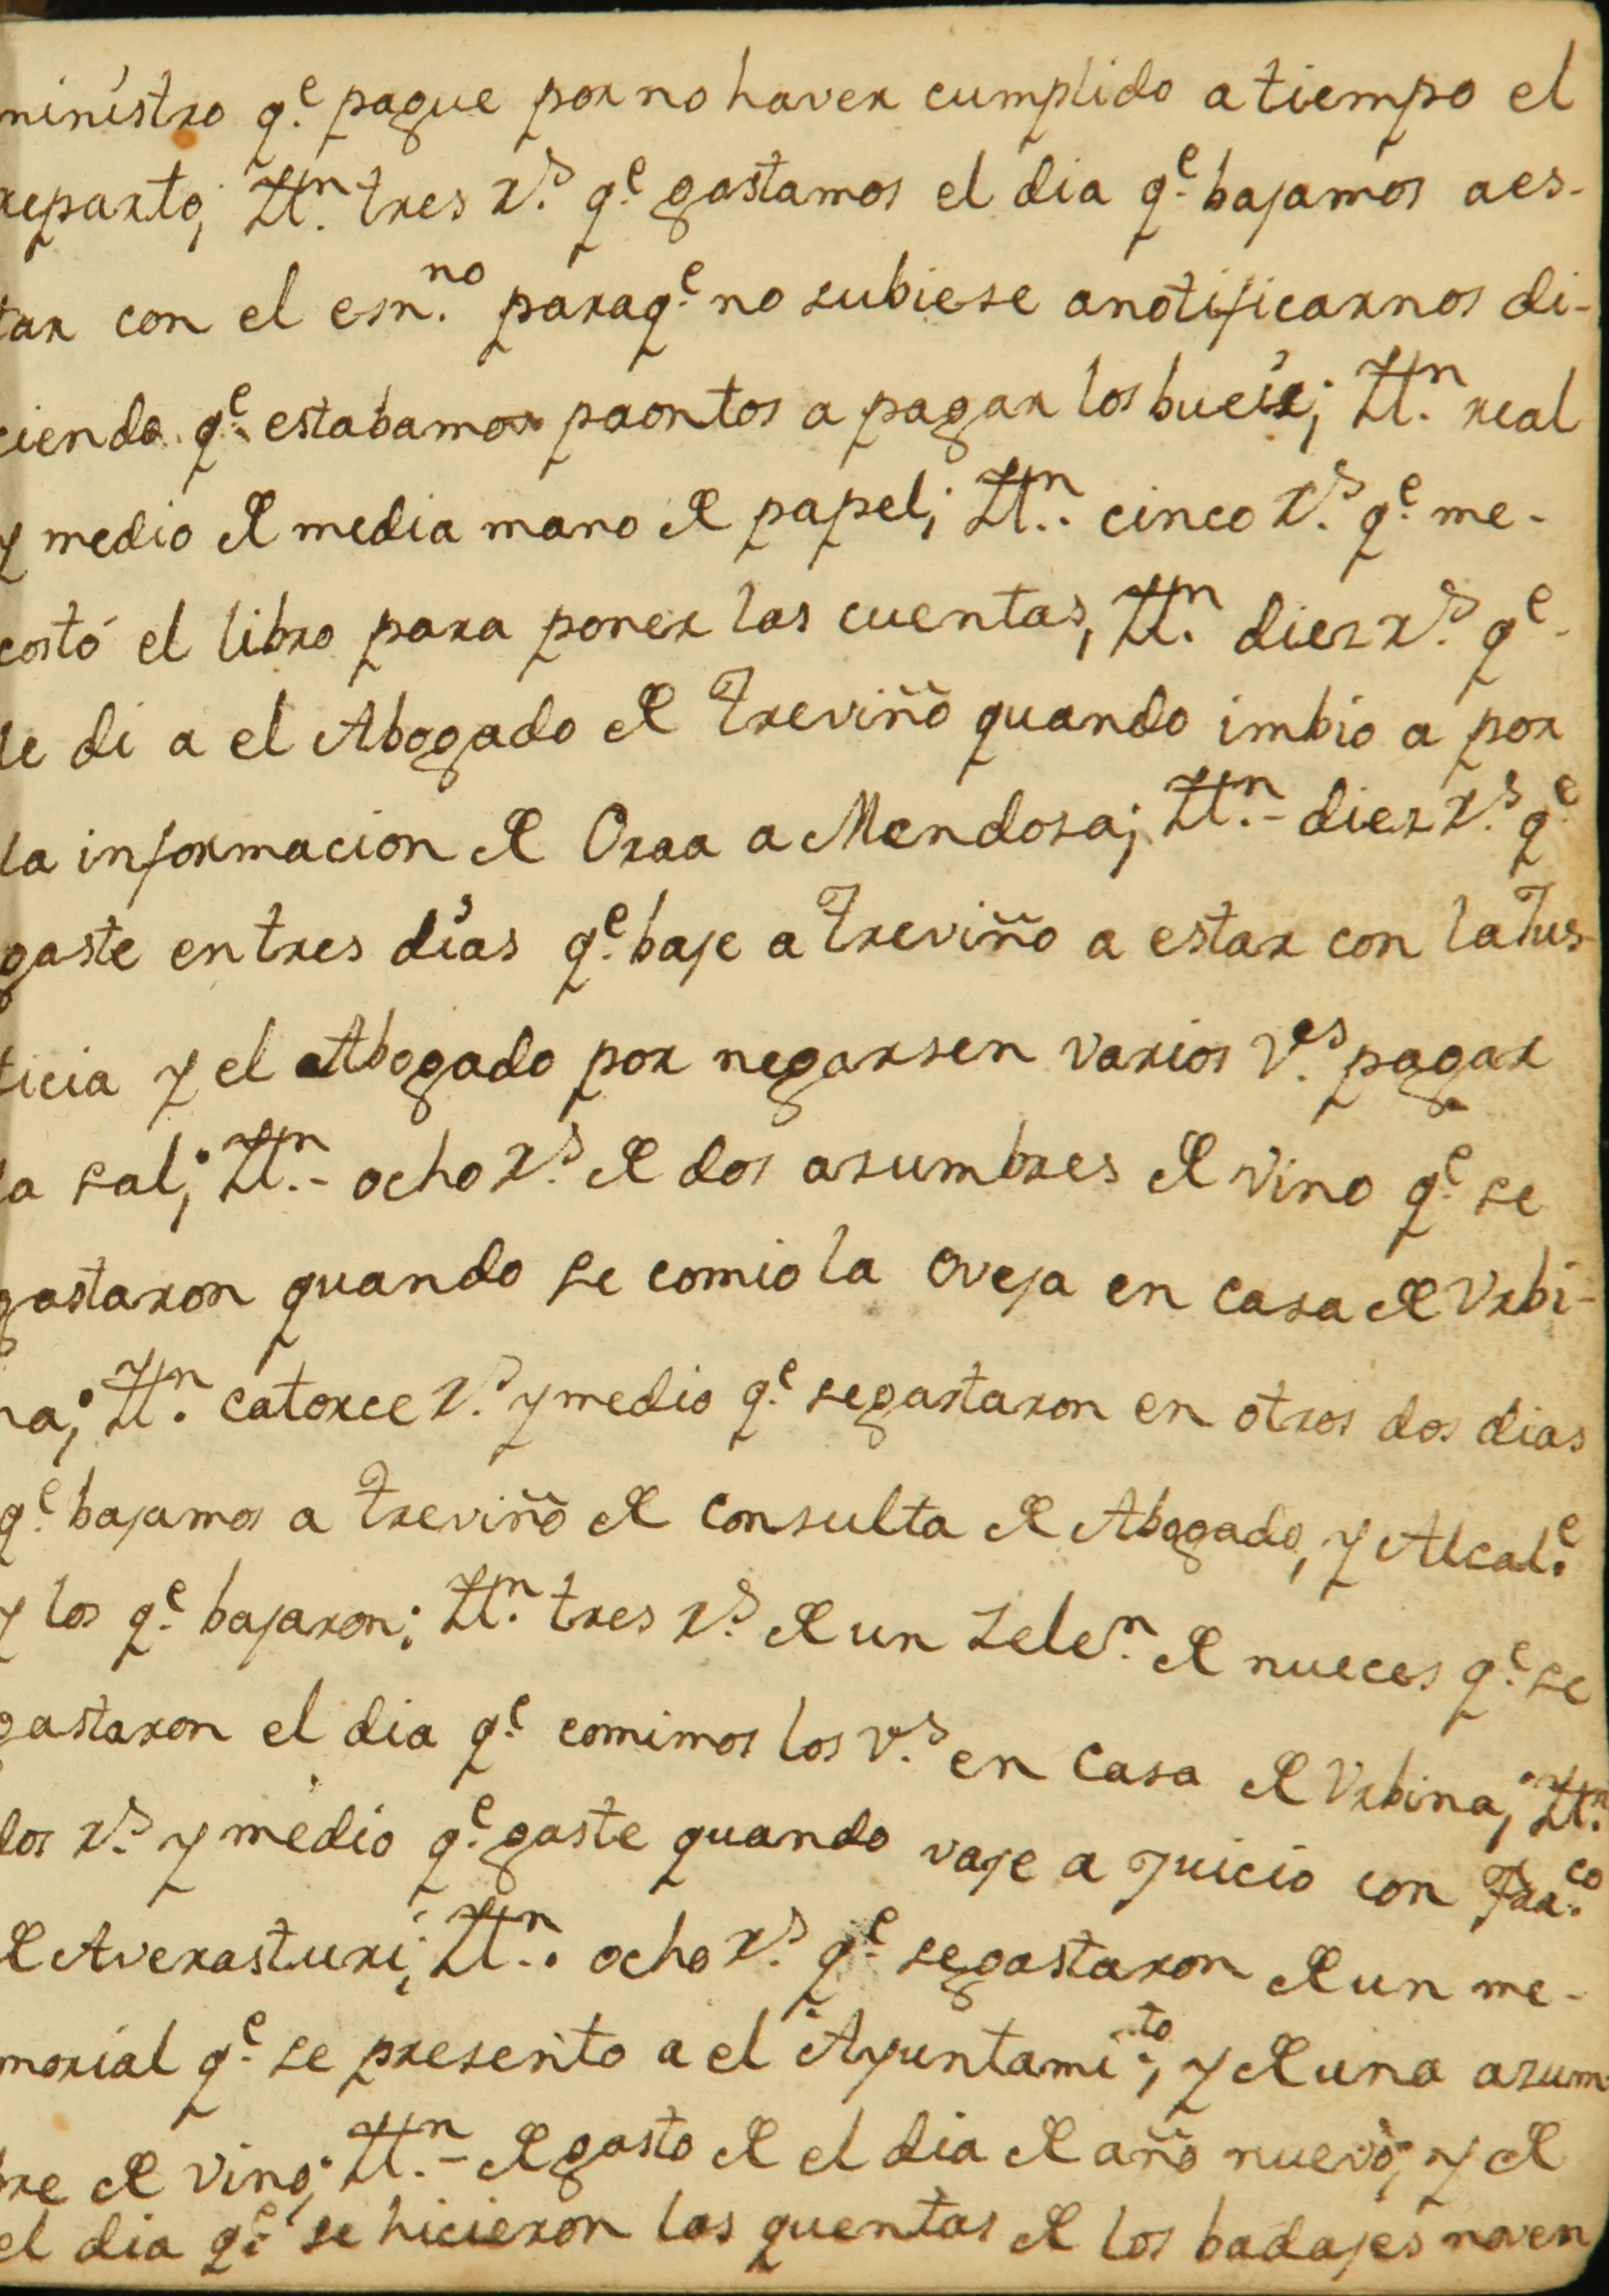 ministro q.e pague por no haver cumplido a tiempo el
reparto; Ittn. tres r.s q.e gastamos el dia q.e bajamos a es-
tar con el esn.no para q.e no subiese a notificarnos di-
ciendo q.e estabamos paontos a pagar los bueis; Ittn. real
y medio de media mano de papel; Ittn. cinco r.s q.e me-
costó el libro para poner las cuentas, Ittn. diez r.s q.e
le di a el Abogado de Treviño quando imbio a por
la informacion de Oxaa a Mendosa; Ittn.- diez r.s q.e
gaste en tres días q.e baje a Treviño a estar con la Jus-
ticia y el Abogado por negarsen varios V.es pagar
la sal; Ittn.- ocho r.s de dos azumbres de vino q.e se
gastaron quando se comio la oveja en casa de Vrbi-
na; Ittn. catorce r.s y medio q.e se gastaron en otros dos dias
q.e bajamos a Treviño de consulta de Abogado, y Alcal.e
y los q.e bajaron; Ittn. tres r.s de un Zele.n de nueces q.e se
gastaron el dia q.e comimos los v.s en casa de Vrbina; Ittn.
dos r.s y medio q.e gaste quando vaje a Juicio con Fra.co
de Averasturi; Ittn. ocho r.s q.e se gastaron de un me-
morial q.e se presento a el Ayuntami.to, y de una azum
bre de vino; Ittn.- de gasto de el dia de año nuevo, y de
el dia q.e se hicieron las quentas de los badajes noven